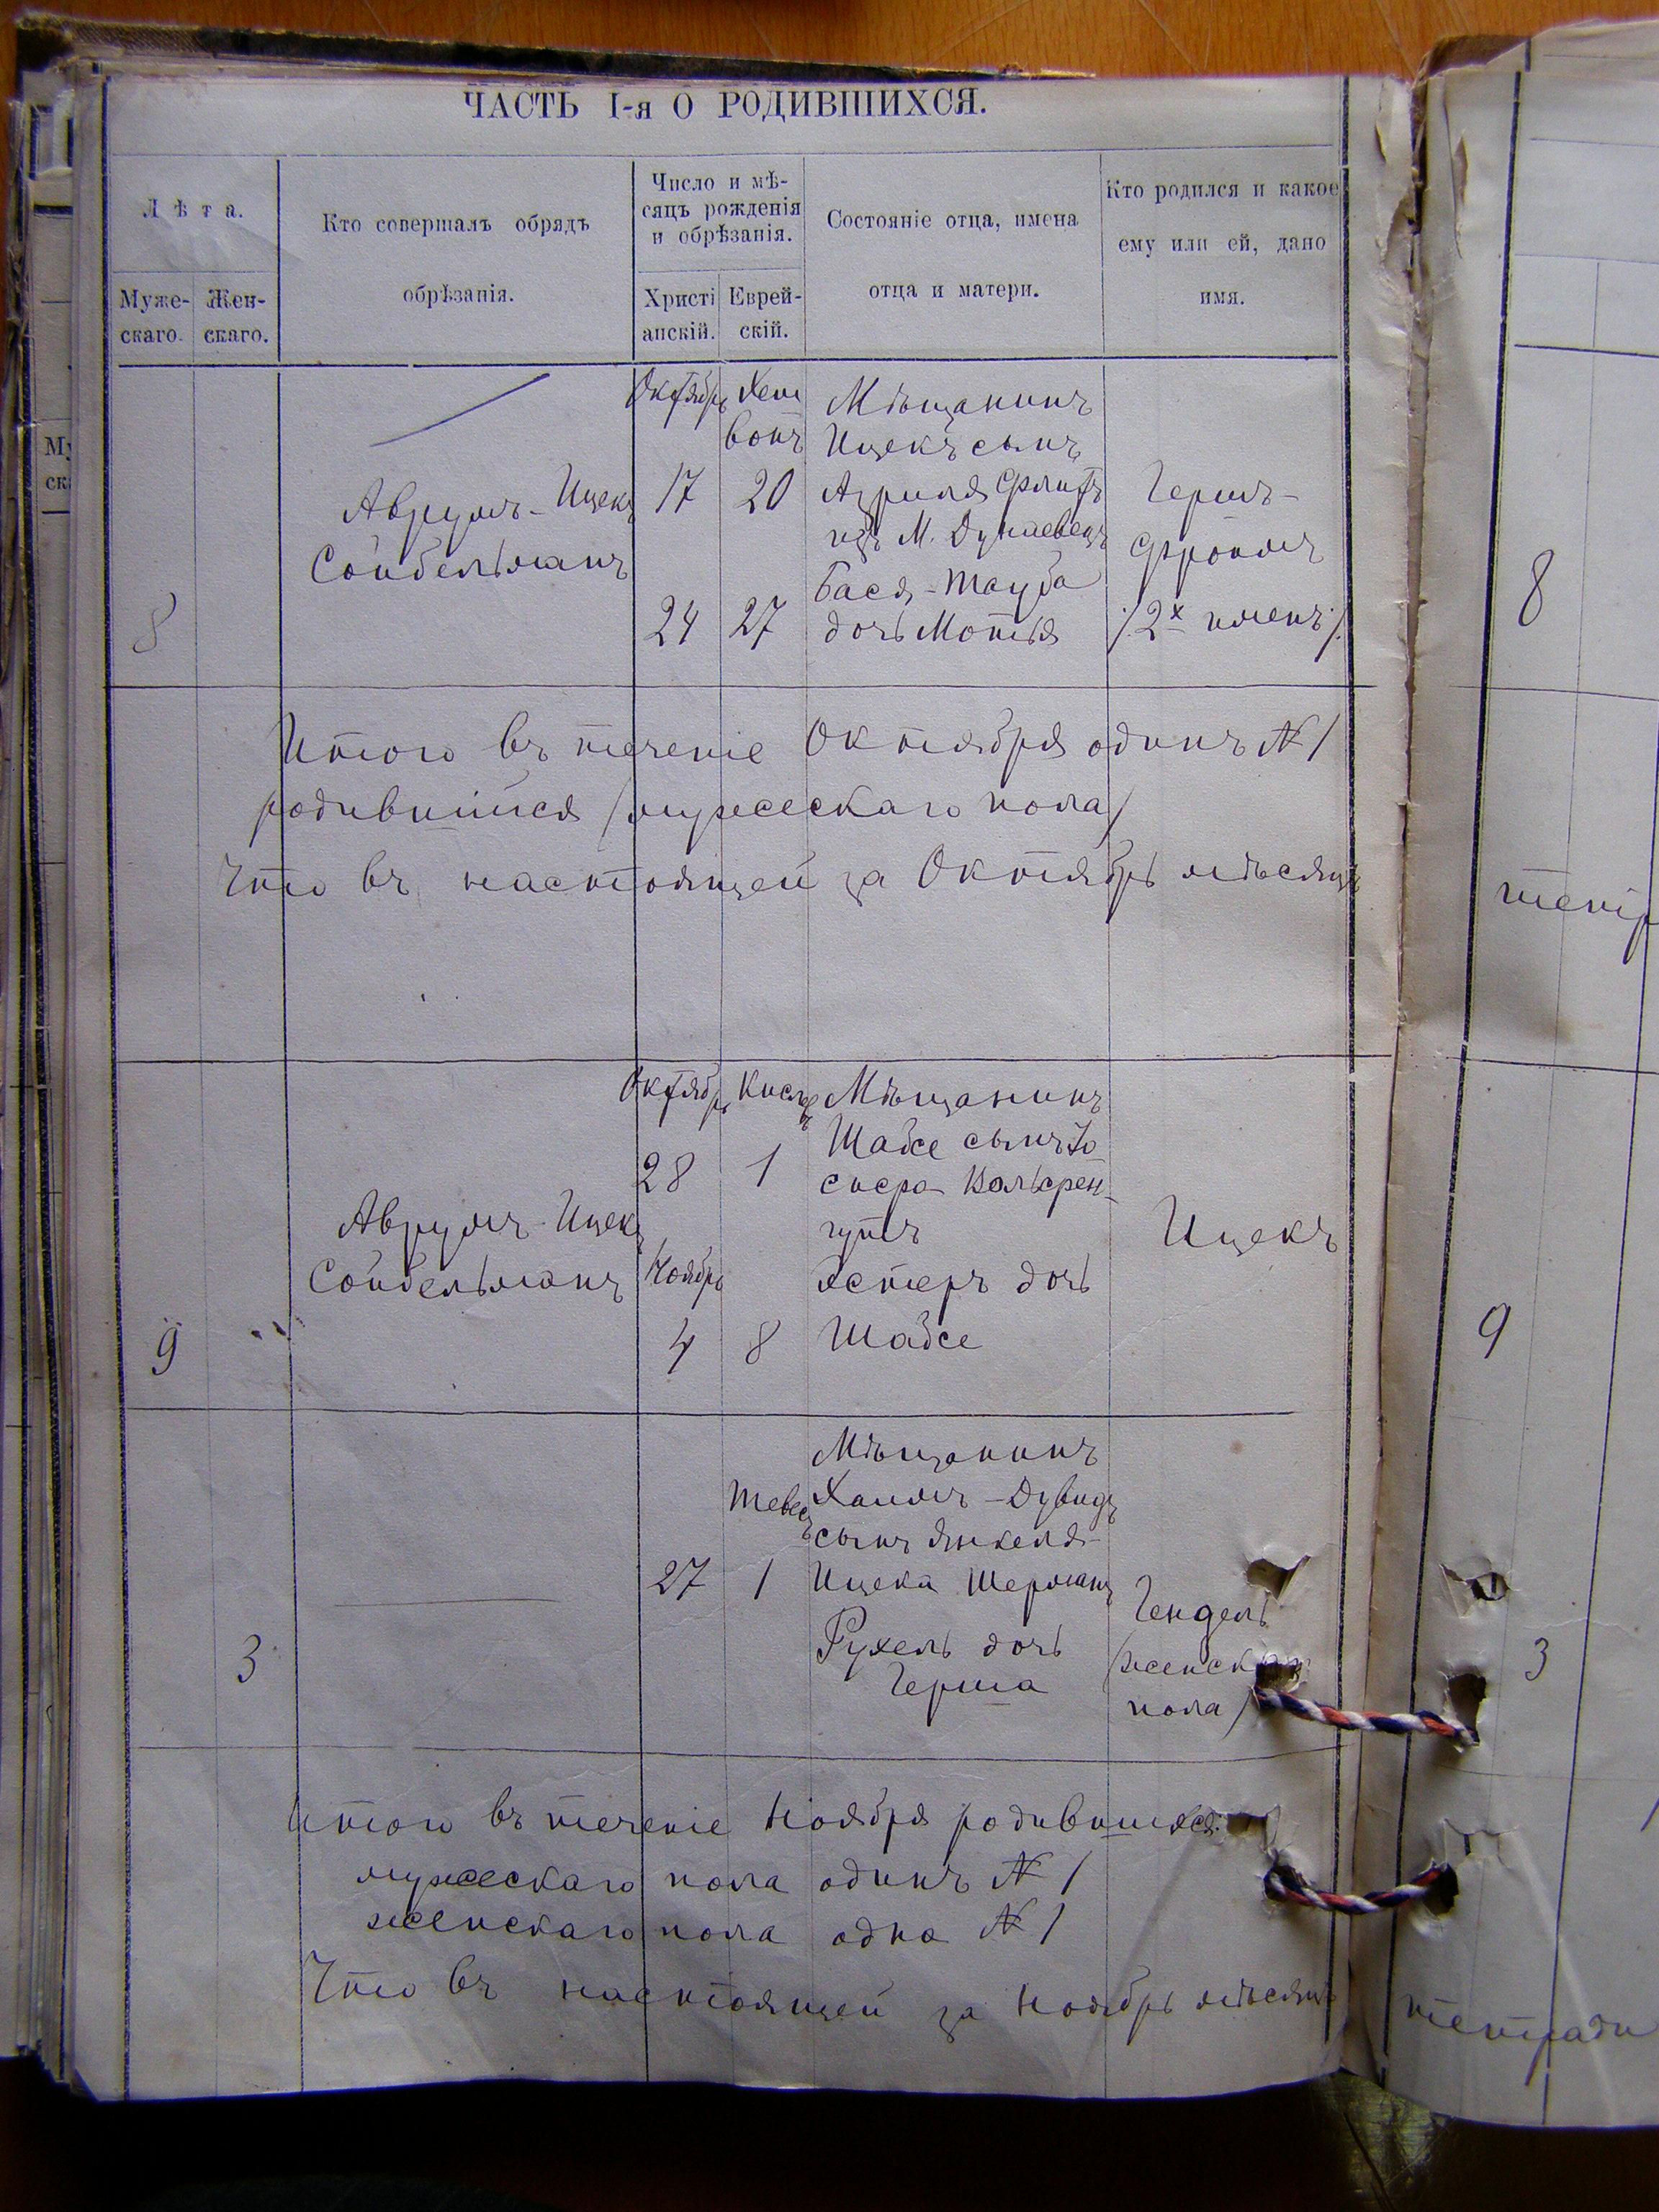 ЧАСТЬ I-я О РОДИВШИХСЯ.
Лѣта.
Муже-
скаго.
Жен-
скаго.
Кто совершалъ обрядъ
обрѣзанія.
Число и мѣ-
сяцъ рожденія
и обрѣзанія.
Христі
анскій.
Еврей-
скій.
Состояніе отца, имена
отца и матери.
Кто родился и какое
ему или ей, дано
имя.
8
Аврумъ-Ицекъ
Сойбельманъ
Октябрь
17
24
Хеш
вонъ
20
27
Мѣщанинъ
Ицекъ сынъ
Азриля
изъ М. Дунаевецъ
Бася-Тауба
дочь Мотья
Гершъ-
Фроимъ
/2х именъ/
8
Итого въ теченіе Октября одинъ № 1
родившійся /мужескаго пола/
Что въ настоящей за Октябрь мѣсяцъ
9
Аврумъ-Ицекъ
Сойбельманъ
Октябрь
28
Ноябрь
4
Кислевъ
1
8
Мѣщанинъ
Шабсе сынъ Іо
сифа
Эстеръ дочь
Шабсе
Ицекъ
9
3
27
Тевесъ
1
Мѣщанинъ
Хаимъ-Дувидъ
сынъ Янкеля-
Ицека Шерманъ
Рухель дочь
Герша
Гендель
/женск
пола/
3
Итого въ теченіе Ноября родившихся:
мужескаго пола одинъ № 1
женскаго пола одна № 1
Что въ настоящей за Ноябрь мѣсяцъ
тетради